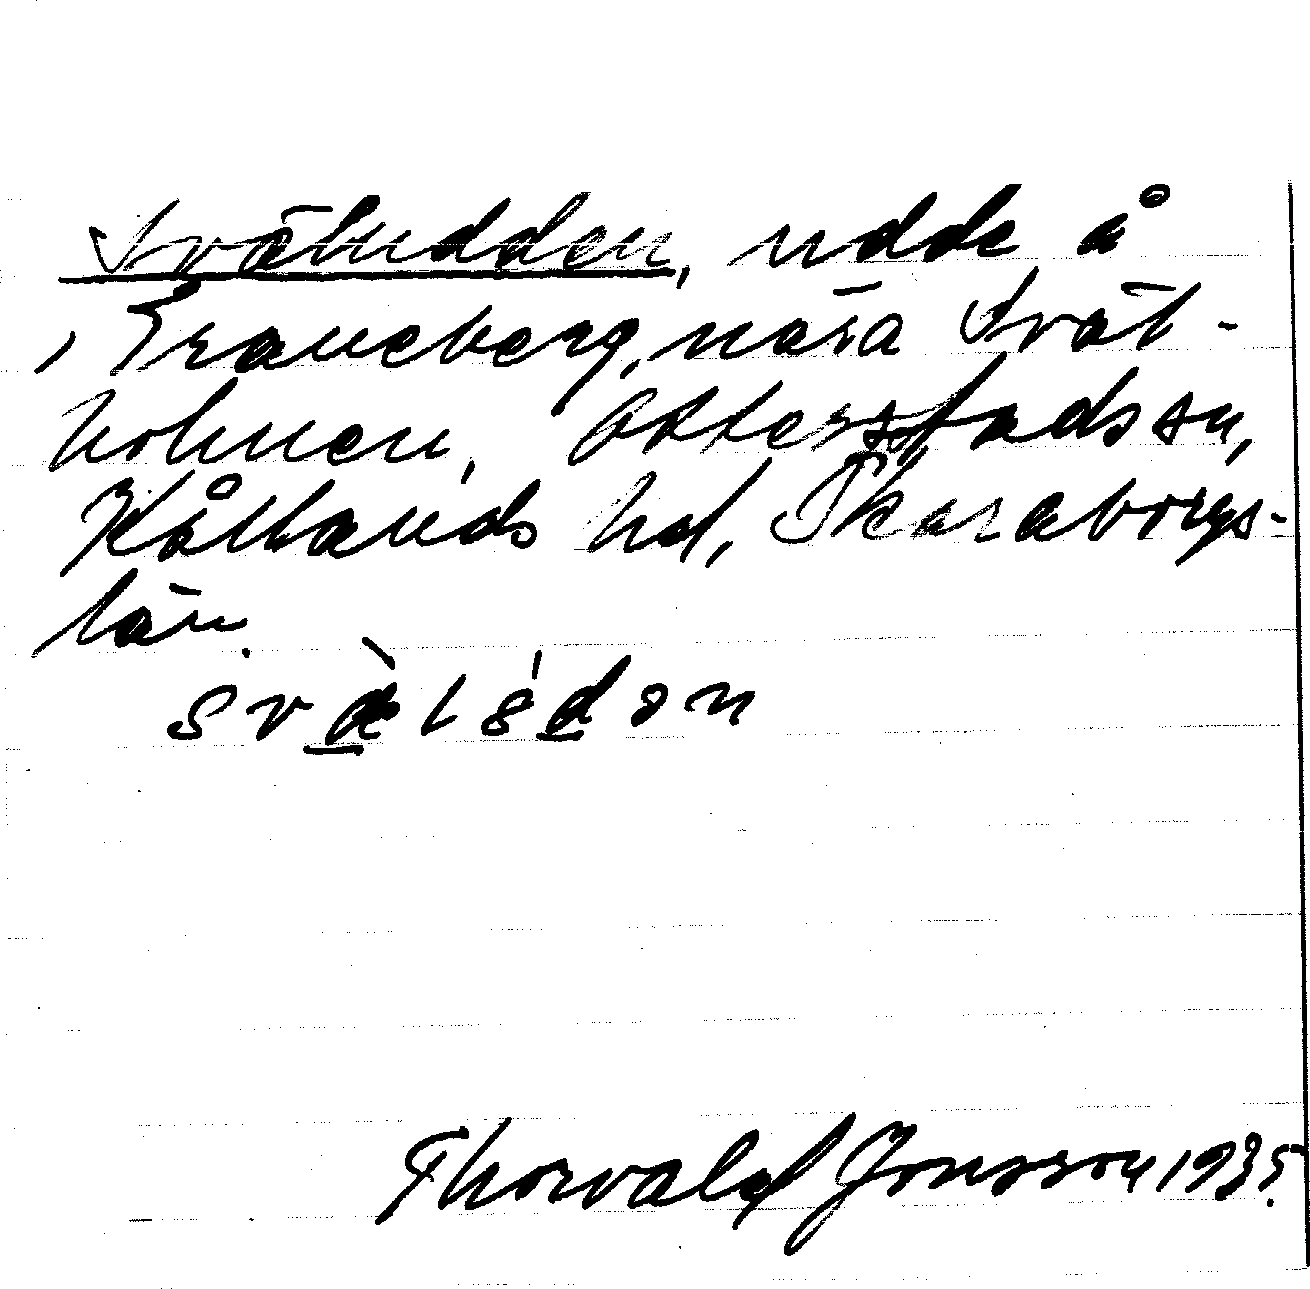 Svältudden, udde å
, Traneberg, nära Svält-
holmen, Otterstads sn,
Kållands hd, Skaraborgs-
län.
Thorvald Jonsson 1935.